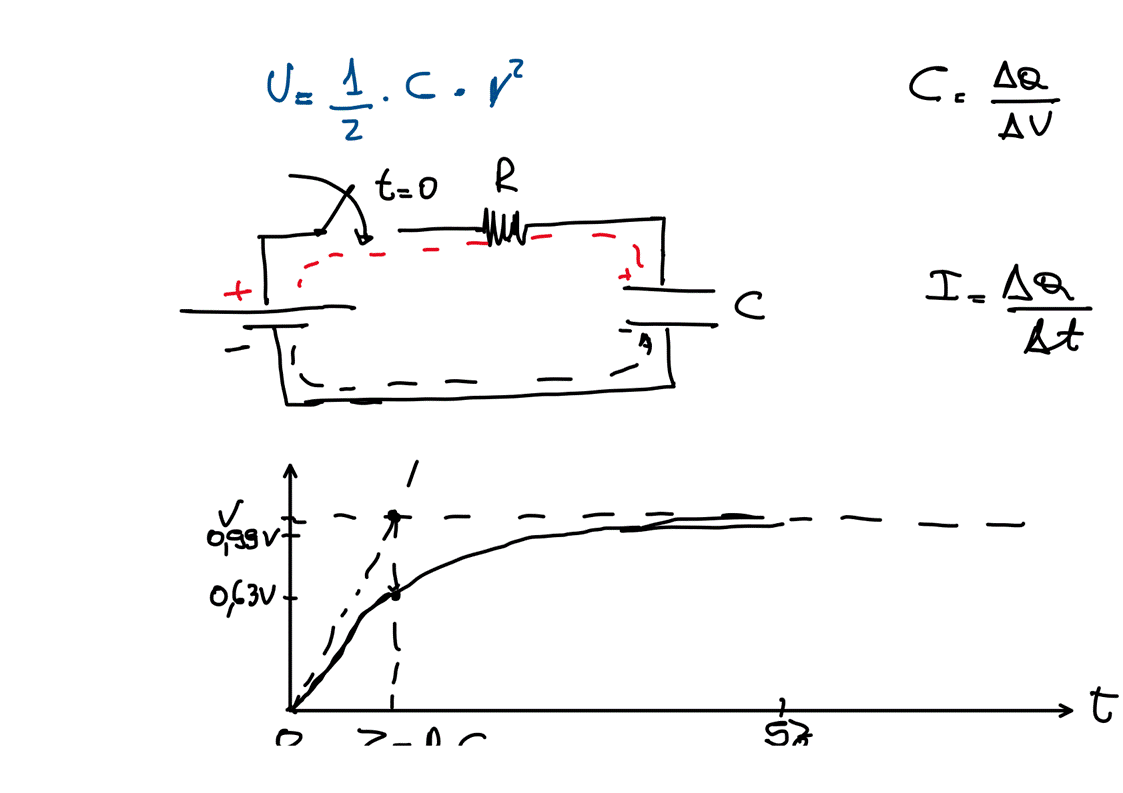 U = 1/2 · C · V²
C = ΔQ/ΔV
t=0
R
+
+
C
-
-
I = ΔQ/Δt
V
0,99V
0,63V
t
0
5τ